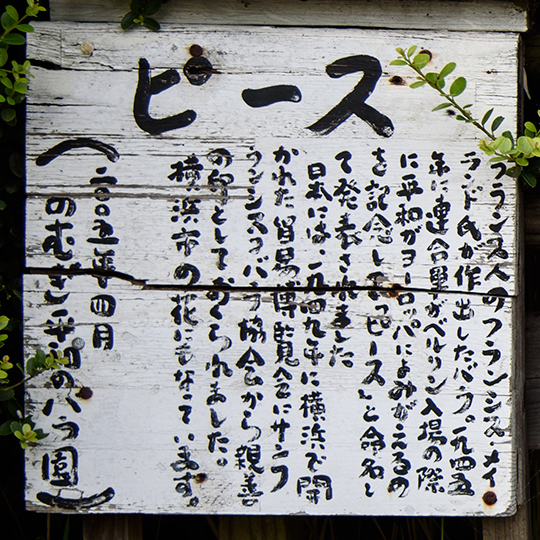 ピース
フランス人のフランシス メイ
ランド氏が作出したバラ。一九四五
年に連合軍がベルリン入場の際
に平和がヨーロッパによみがえるの
を記念して「ピース」と命名し
て発表されました
日本には、一九四九年に横浜で開
かれた貿易博覧会にサンフ
ランシスコバラ協会から親善
の印としておくられました。
横浜市の花にもなっています。
二〇〇五年四月
(のむぎ平和のバラ園)